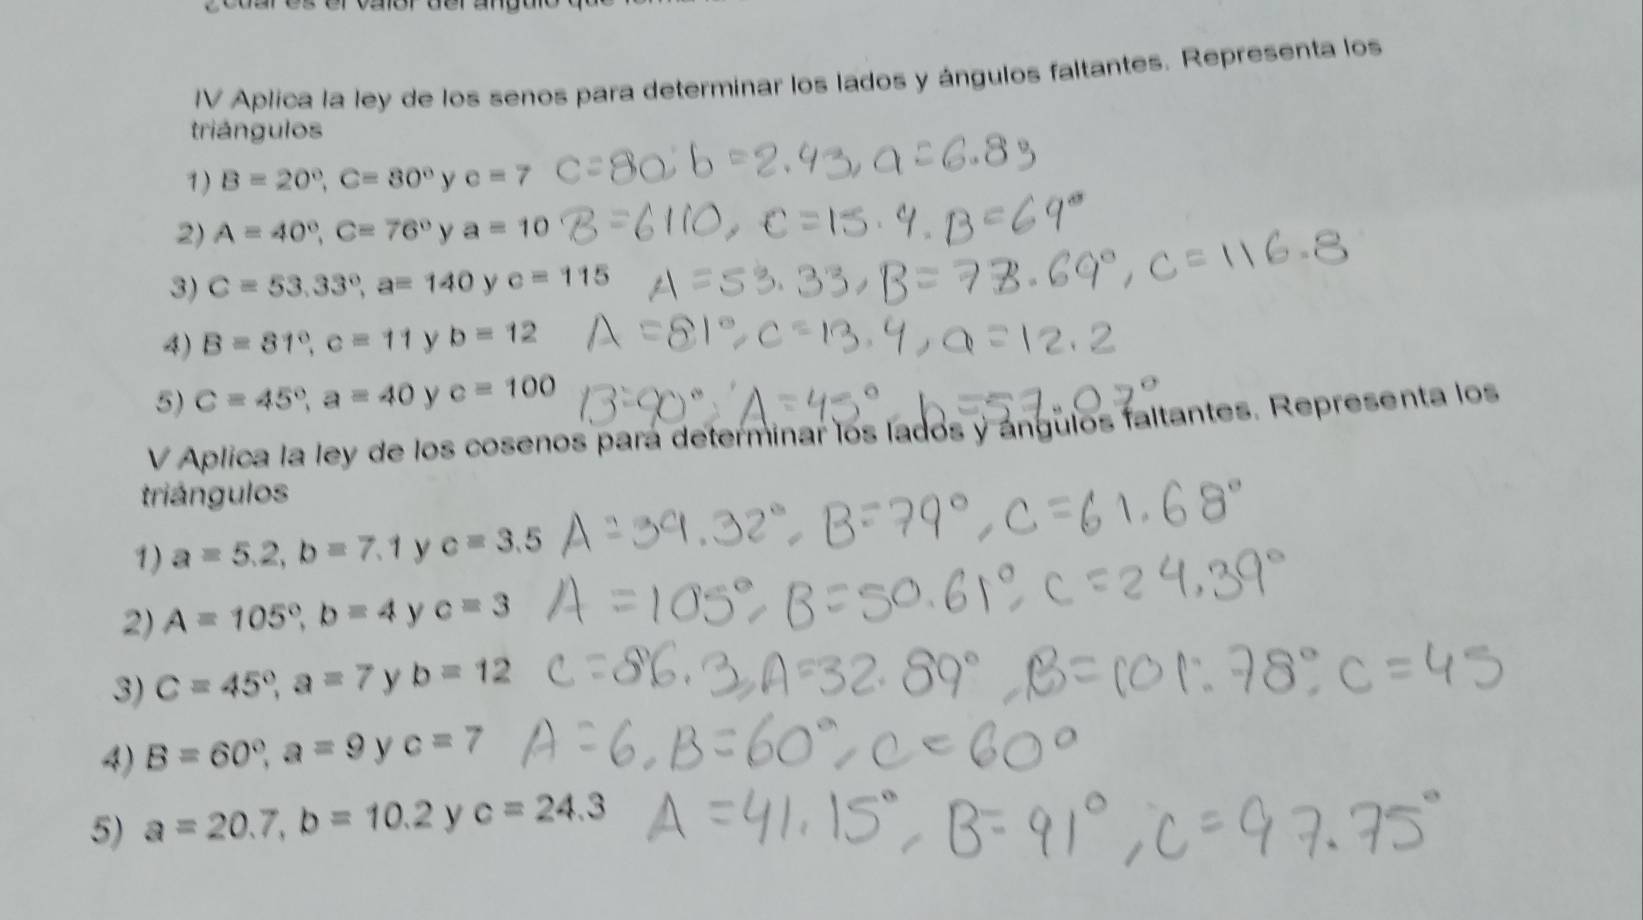 ¿Cuál es el valor del ángulo que
IV Aplica la ley de los senos para determinar los lados y ángulos faltantes. Representa los
triángulos
1) B = 20º, C= 80º y c = 7 C=80, b=2.43, a=6.83
2) A = 40º, C= 76º y a = 10 B=6110, C=15.4. B=69°
3) C = 53.33º, a= 140 y c = 115 A=53.33, B=73.69°, C=116.8
4) B = 81º, c = 11 y b = 12 A=81°, C=13.4, a=12.2
5) C = 45º, a = 40 y c = 100 B=90°, A=45°, b=57.07°
V Aplica la ley de los cosenos para determinar los lados y ángulos faltantes. Representa los
triángulos
1) a = 5.2, b = 7.1 y c = 3.5 A=39.32°, B=79°, C=61.68°
2) A = 105º, b = 4 y c = 3 A=105°, B=50.61°, C=24.39°
3) C = 45º, a = 7 y b = 12 C=86.3, A=32.89°, B=101.78°, C=45
4) B = 60º, a = 9 y c = 7 A=6, B=60°, C=60°
5) a = 20.7, b = 10.2 y c = 24.3 A=41.15°, B=91°, C=97.75°